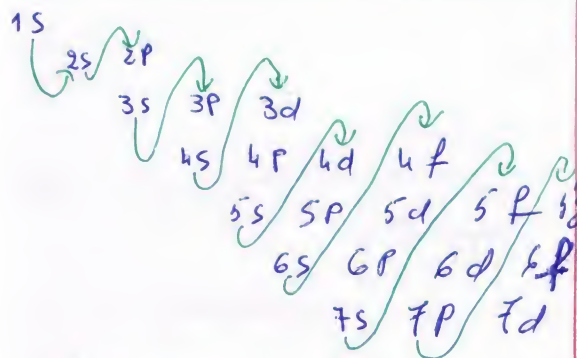 1s
2s 2p
3s 3p 3d
4s 4p 4d 4f
5s 5p 5d 5f
6s 6p 6d 6f
7s 7p 7d